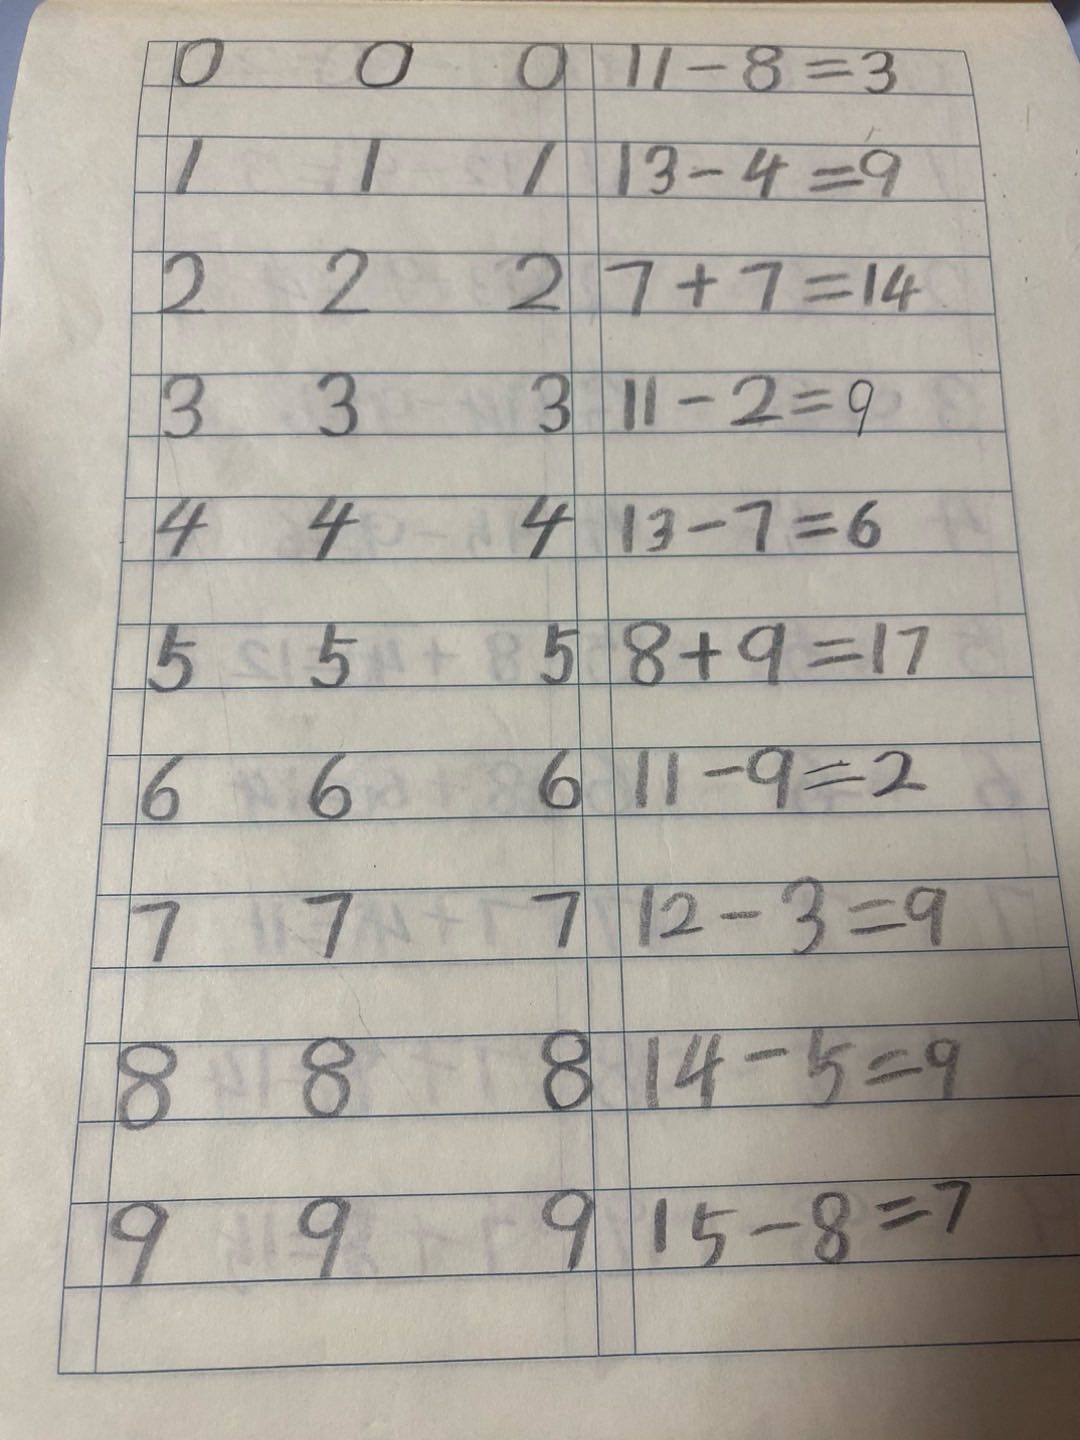 0 0 0 11-8=3
1 1 1 13-4=9
2 2 2 7+7=14
3 3 3 11-2=9
4 4 4 13-7=6
5 5 5 8+9=17
6 6 6 11-9=2
7 7 7 12-3=9
8 8 8 14-5=9
9 9 9 15-8=7